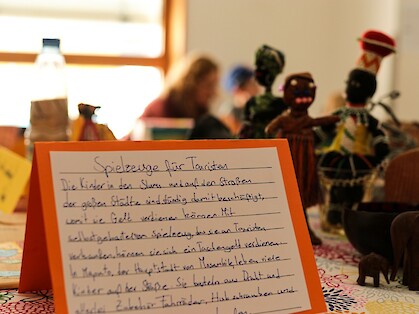 Spielzeuge für Touristen
Die Kinder in den Slums und auf den Straßen
der großen Städte sind ständig damit beschäftigt,
womit sie Geld verdienen können. Mit
selbstgebasteltem Spielzeug, das sie an Touristen
verkaufen, können sie sich ein Taschengeld verdienen.
In Maputo, der Hauptstadt von Mosambik, leben viele
Kinder auf der Straße. Sie basteln aus Draht und
Fahrräder, Hubschrauber und